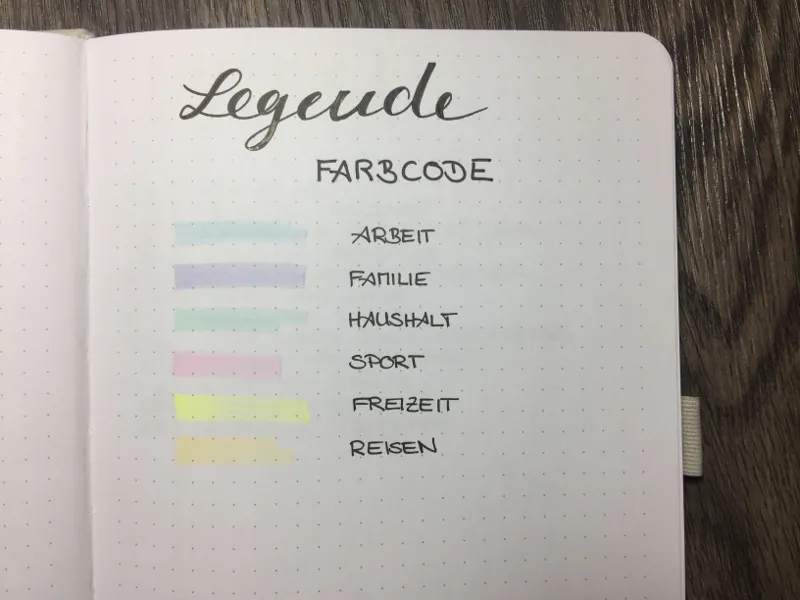 Legende
FARBCODE
ARBEIT
FAMILIE
HAUSHALT
SPORT
FREIZEIT
REISEN